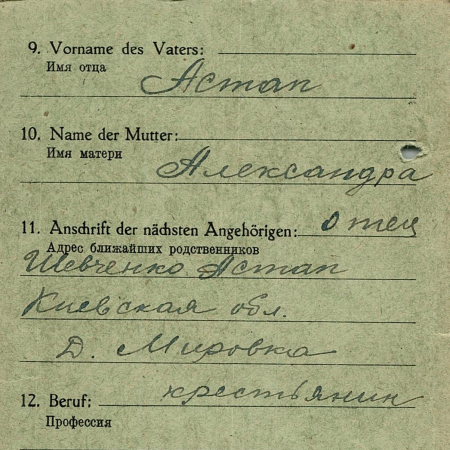 9. Vorname des Vaters:
Имя отца
Астап
10. Name der Mutter:
Имя матери
Александра
11. Anschrift der nächsten Angehörigen: Отец
Адрес ближайших родственников
Шевченко Астап
Киевская обл.
д. Мировка
12. Beruf: крестьянин
Профессия